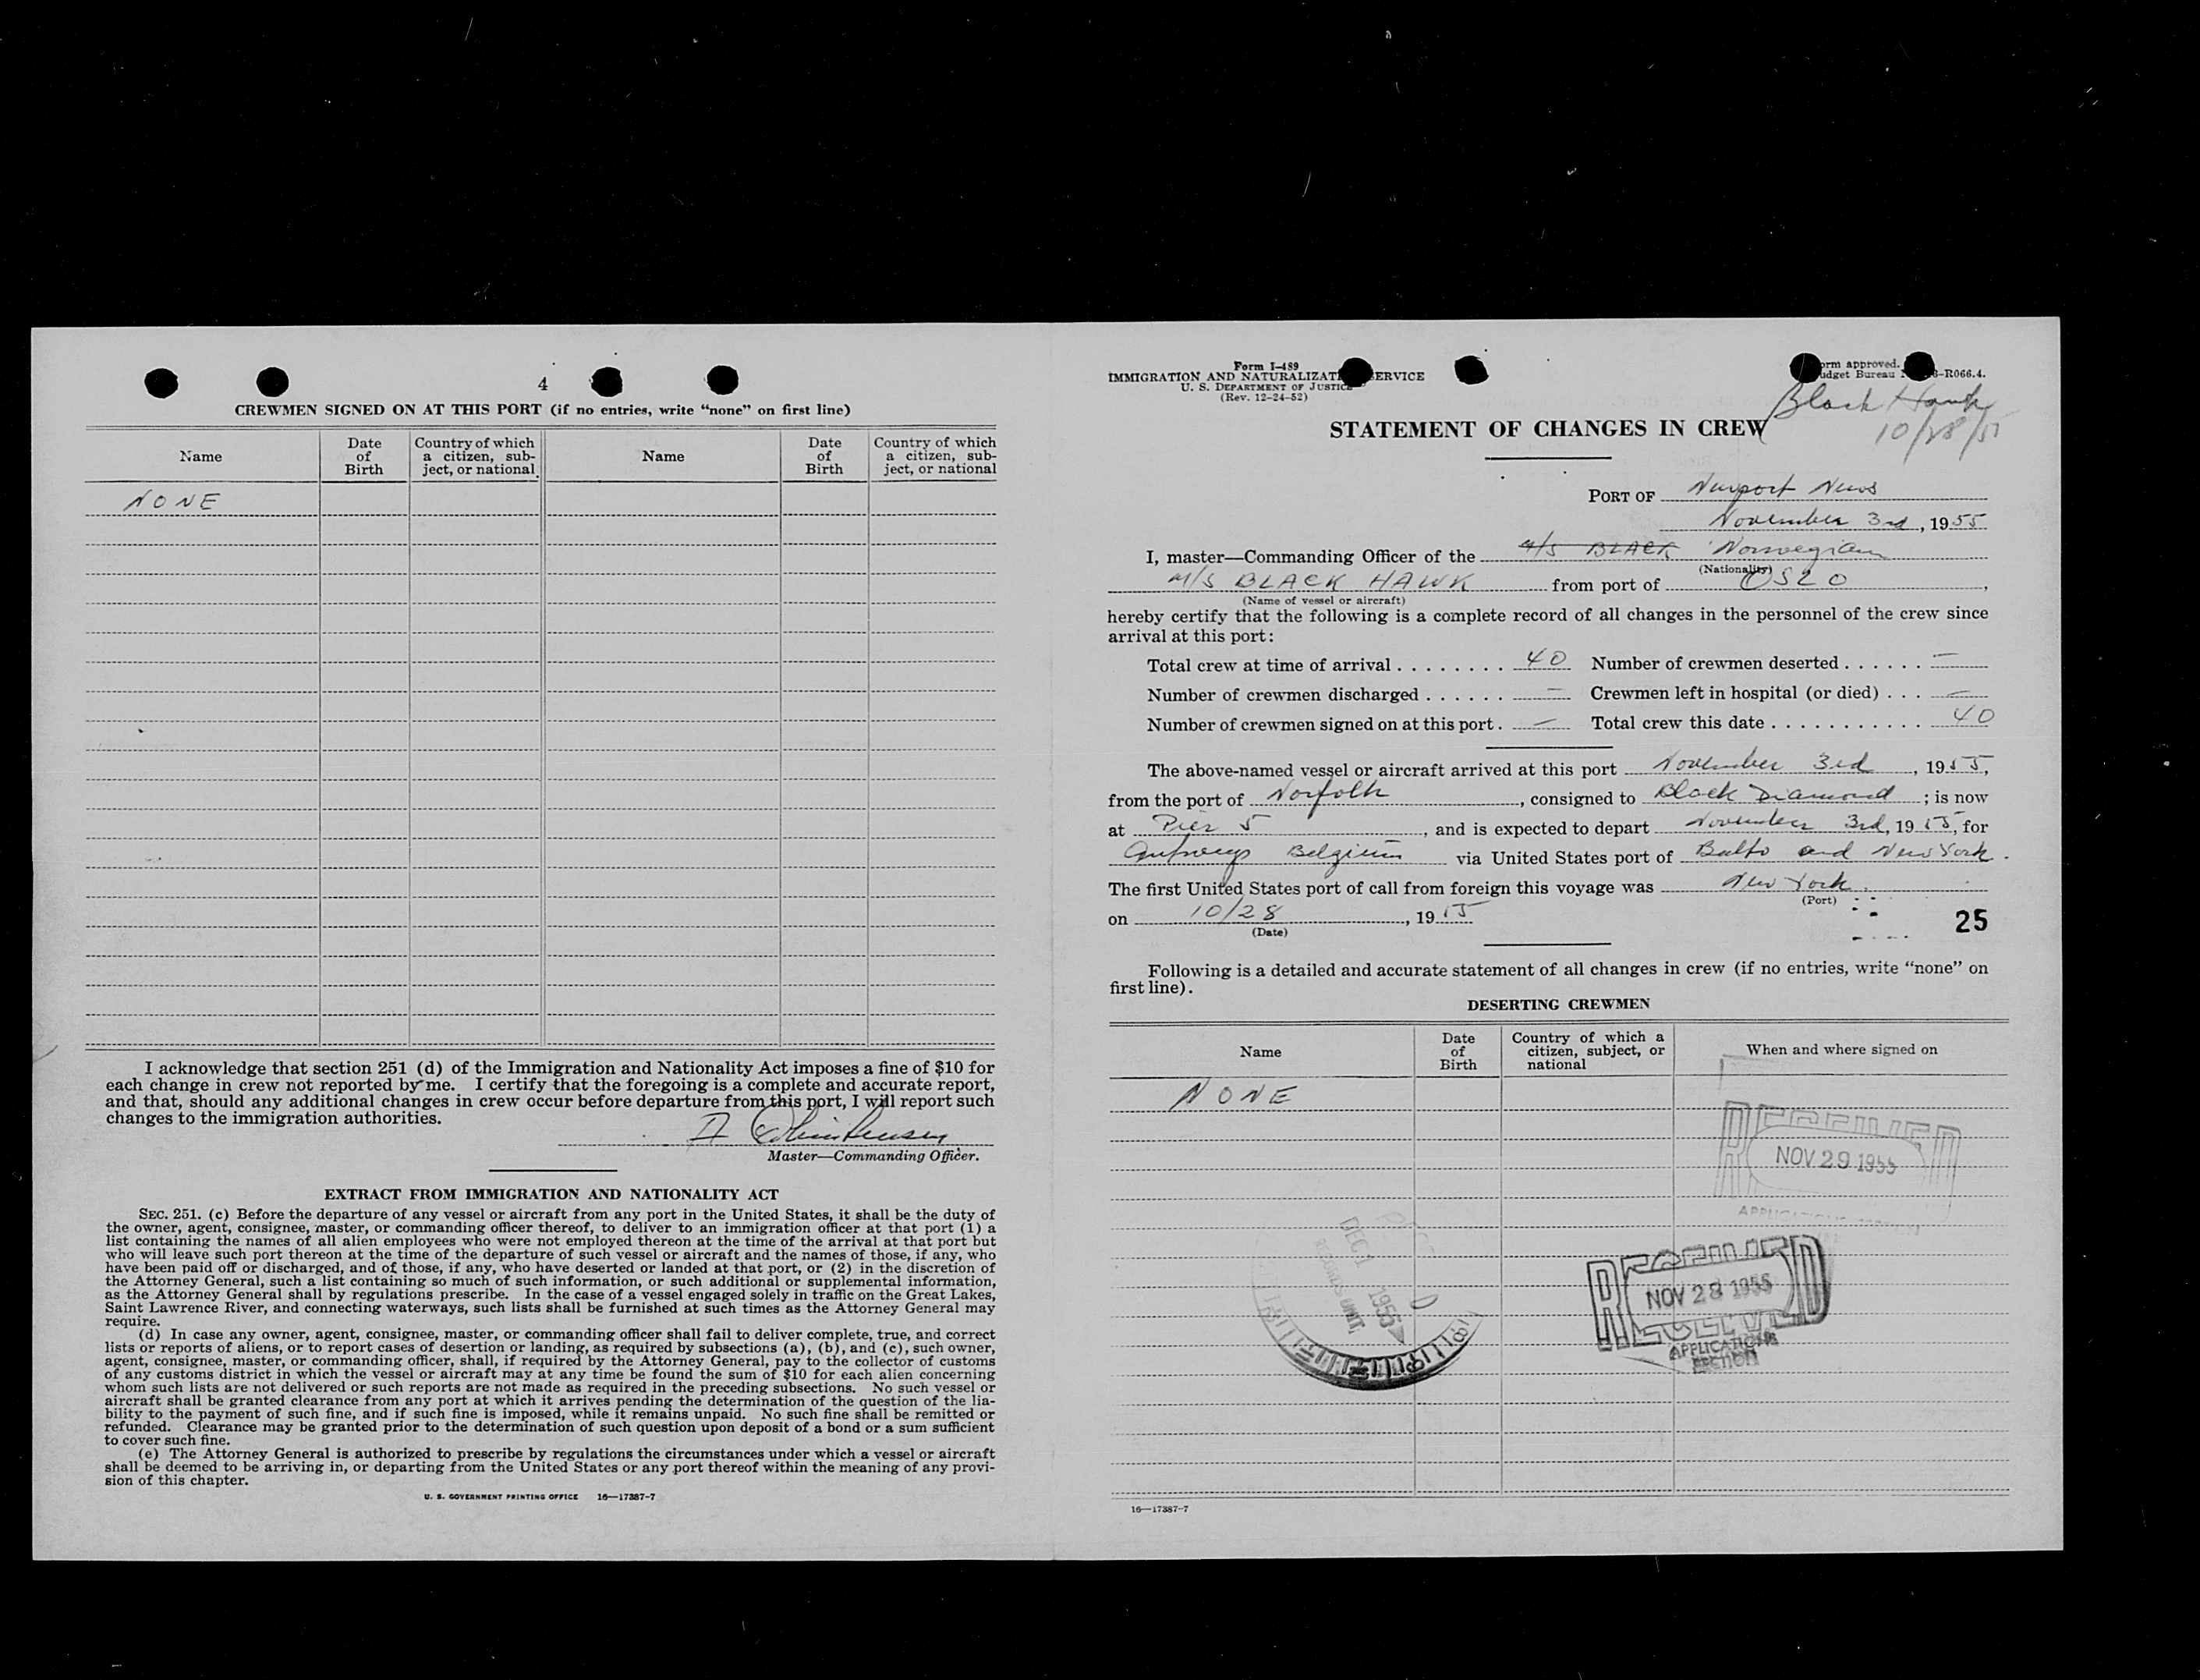 4
CREWMEN SIGNED ON AT THIS PORT (if no entries, write “none” on first line)
Name
Date of Birth
Country of which a citizen, sub-ject, or national
Name
Date of Birth
Country of which a citizen, sub-ject, or national
NONE
I acknowledge that section 251 (d) of the Immigration and Nationality Act imposes a fine of $10 for
each change in crew not reported by me. I certify that the foregoing is a complete and accurate report,
and that, should any additional changes in crew occur before departure from this port, I will report such
changes to the immigration authorities.
Master—Commanding Officer.
EXTRACT FROM IMMIGRATION AND NATIONALITY ACT
SEC. 251. (c) Before the departure of any vessel or aircraft from any port in the United States, it shall be the duty of
the owner, agent, consignee, master, or commanding officer thereof, to deliver to an immigration officer at that port (1) a
list containing the names of all alien employees who were not employed thereon at the time of the arrival at that port but
who will leave such port thereon at the time of the departure of such vessel or aircraft and the names of those, if any, who
have been paid off or discharged, and of those, if any, who have deserted or landed at that port, or (2) in the discretion of
the Attorney General, such a list containing so much of such information, or such additional or supplemental information,
as the Attorney General shall by regulations prescribe. In the case of a vessel engaged solely in traffic on the Great Lakes,
Saint Lawrence River, and connecting waterways, such lists shall be furnished at such times as the Attorney General may
require.
(d) In case any owner, agent, consignee, master, or commanding officer shall fail to deliver complete, true, and correct
lists or reports of aliens, or to report cases of desertion or landing, as required by subsections (a), (b), and (c), such owner,
agent, consignee, master, or commanding officer, shall, if required by the Attorney General, pay to the collector of customs
of any customs district in which the vessel or aircraft may at any time be found the sum of $10 for each alien concerning
whom such lists are not delivered or such reports are not made as required in the preceding subsections. No such vessel or
aircraft shall be granted clearance from any port at which it arrives pending the determination of the question of the lia-
bility to the payment of such fine, and if such fine is imposed, while it remains unpaid. No such fine shall be remitted or
refunded. Clearance may be granted prior to the determination of such question upon deposit of a bond or a sum sufficient
to cover such fine.
(e) The Attorney General is authorized to prescribe by regulations the circumstances under which a vessel or aircraft
shall be deemed to be arriving in, or departing from the United States or any port thereof within the meaning of any provi-
sion of this chapter.
U. S. GOVERNMENT PRINTING OFFICE 16—17387-7
Form I-489
IMMIGRATION AND NATURALIZAT ERVICE
U. S. DEPARTMENT OF JUSTICE
(Rev. 12-24-52)
orm approved.
udget Bureau -R066.4.
Black Hawk
10/28/55
STATEMENT OF CHANGES IN CREW
PORT OF Newport News
November 3rd, 1955
I, master—Commanding Officer of the M/S BLACK Norwegian
(Nationality)
M/S BLACK HAWK from port of OSLO,
(Name of vessel or aircraft)
hereby certify that the following is a complete record of all changes in the personnel of the crew since
arrival at this port:
Total crew at time of arrival . . . . . . . . 40 Number of crewmen deserted . . . . . . —
Number of crewmen discharged . . . . . . — Crewmen left in hospital (or died) . . . —
Number of crewmen signed on at this port . — Total crew this date . . . . . . . . . . . . 40
The above-named vessel or aircraft arrived at this port November 3rd, 1955,
from the port of Norfolk, consigned to Black Diamond; is now
at Pier 5, and is expected to depart November 3rd, 1955, for
Antwerp Belgium via United States port of Balto and New York.
The first United States port of call from foreign this voyage was New York.
(Port)
on 10/28, 1955
(Date)
25
Following is a detailed and accurate statement of all changes in crew (if no entries, write “none” on
first line).
DESERTING CREWMEN
Name
Date of Birth
Country of which a citizen, subject, or national
When and where signed on
NONE
RECEIVED
NOV 29 1955
RECEIVED
NOV 28 1955
APPLICATIONS
SECTION
DEC 1 1955
RECORDS UNIT
16—17387-7